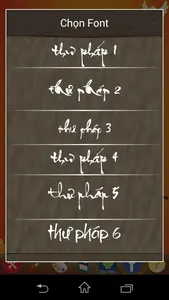 Chọn Font
thư pháp 1
thư pháp 2
thư pháp 3
thư pháp 4
thư pháp 5
thư pháp 6